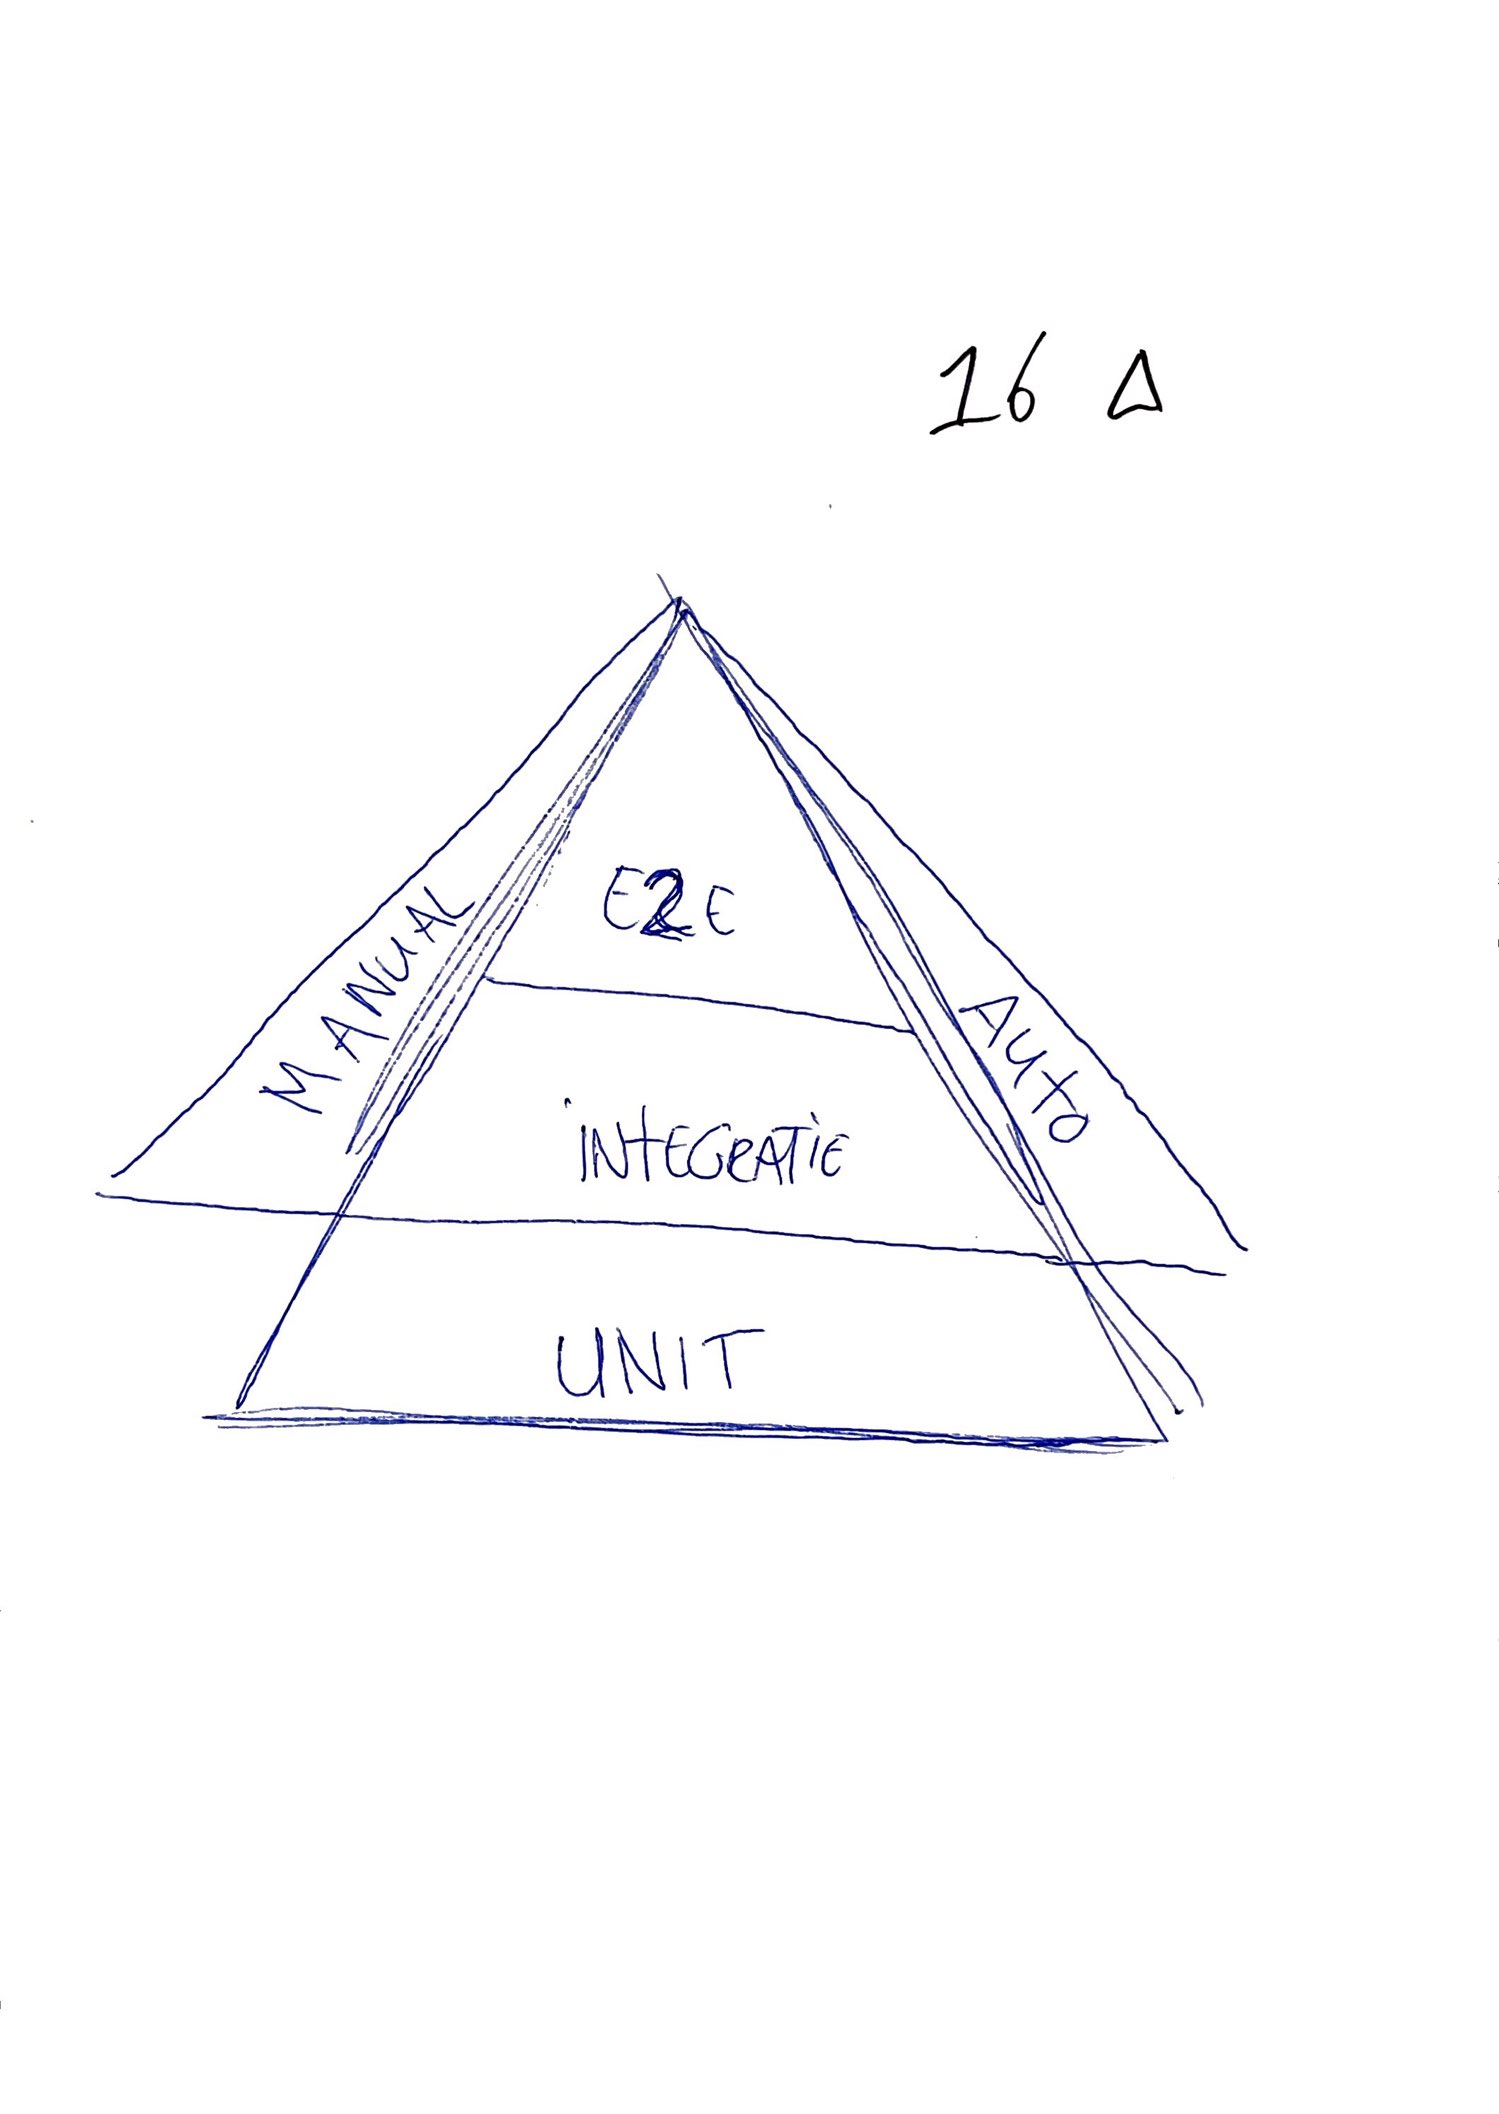 16 Δ
E2E
MANUAL
AUTO
INTEGRATIE
UNIT